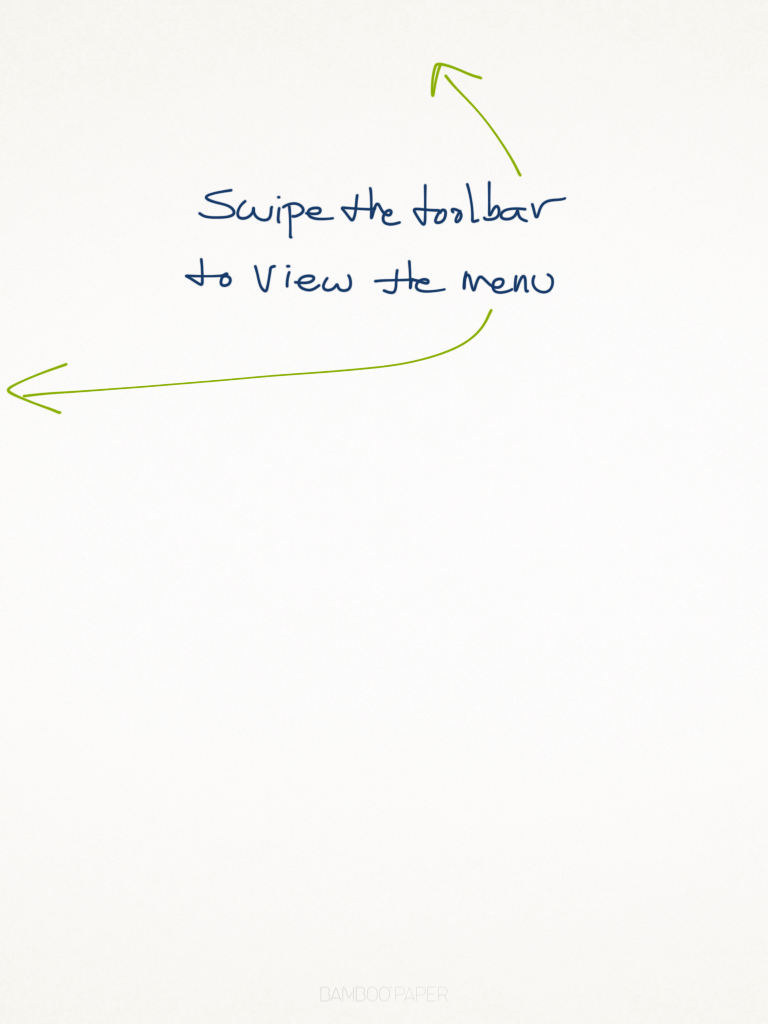 Swipe the toolbar
to view the menu
BAMBOO PAPER